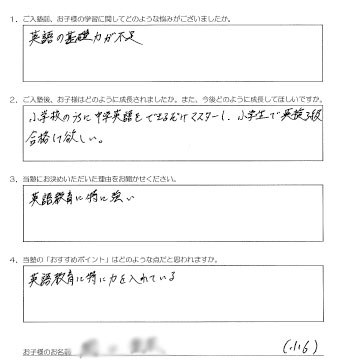 1．ご入塾前、お子様の学習に関してどのような悩みがございましたか。
英語の基礎力が不足
2．ご入塾後、お子様はどのように成長されましたか。また、今後どのように成長してほしいですか。
小学校のうちに中学英語をできるだけマスターし、小学生で英検3級
合格して欲しい。
3．当塾にお決めいただいた理由をお聞かせください。
英語教育に特に強い
4．当塾の「おすすめポイント」はどのような点だと思われますか。
英語教育に特に力を入れている
お子様のお名前
(小6)